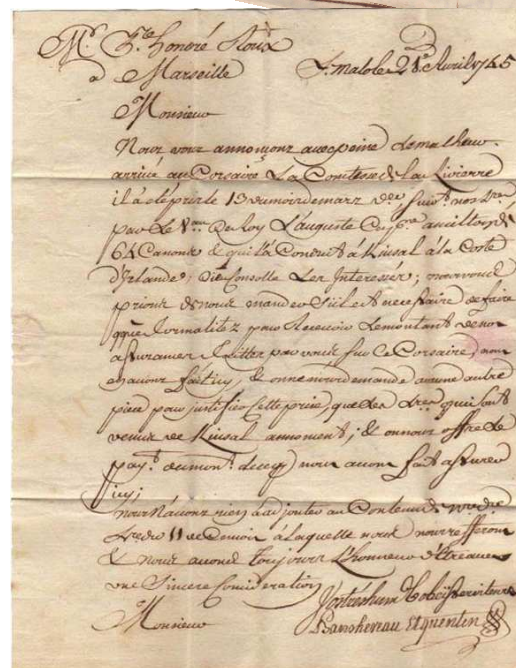 Mr. Honoré Roux
à Marseille
St. malo le 28 Avril 1745
Monsieur
Nous vous annonçons avec peine le malheur
arrivé au Corsaire La Comtesse de la Riviere
il a été pris le 19 du mois de mars
par le Vau. Du Roy L'auguste
64 Canons & qui l'a Conduit à Kinsal à la Coste
d'Irlande, Les Interessés; nous vous
prions de nous mander S'il est necessaire de faire
formalitez pour Recevoir le montant de nos
assurances faittes par vous sur ce Corsaire, nous
en avons fait icy, & on ne nous demande aucune autre
piece pour justifier Cette prise, que des Lres. qui sont
venues de Kinsal & on nous offre le
payt. du mont. de ce que nous avons fait assurer
icy;
nous N'avons rien à adjouter au Contenu de notre
Lre du 11 de Ce mois à Laquelle nous nous refferons
& nous avons toujours L'honneur d'Etre avec
une Sincere Consideration
Monsieur
Vos tres hum. & obeis. serviteurs